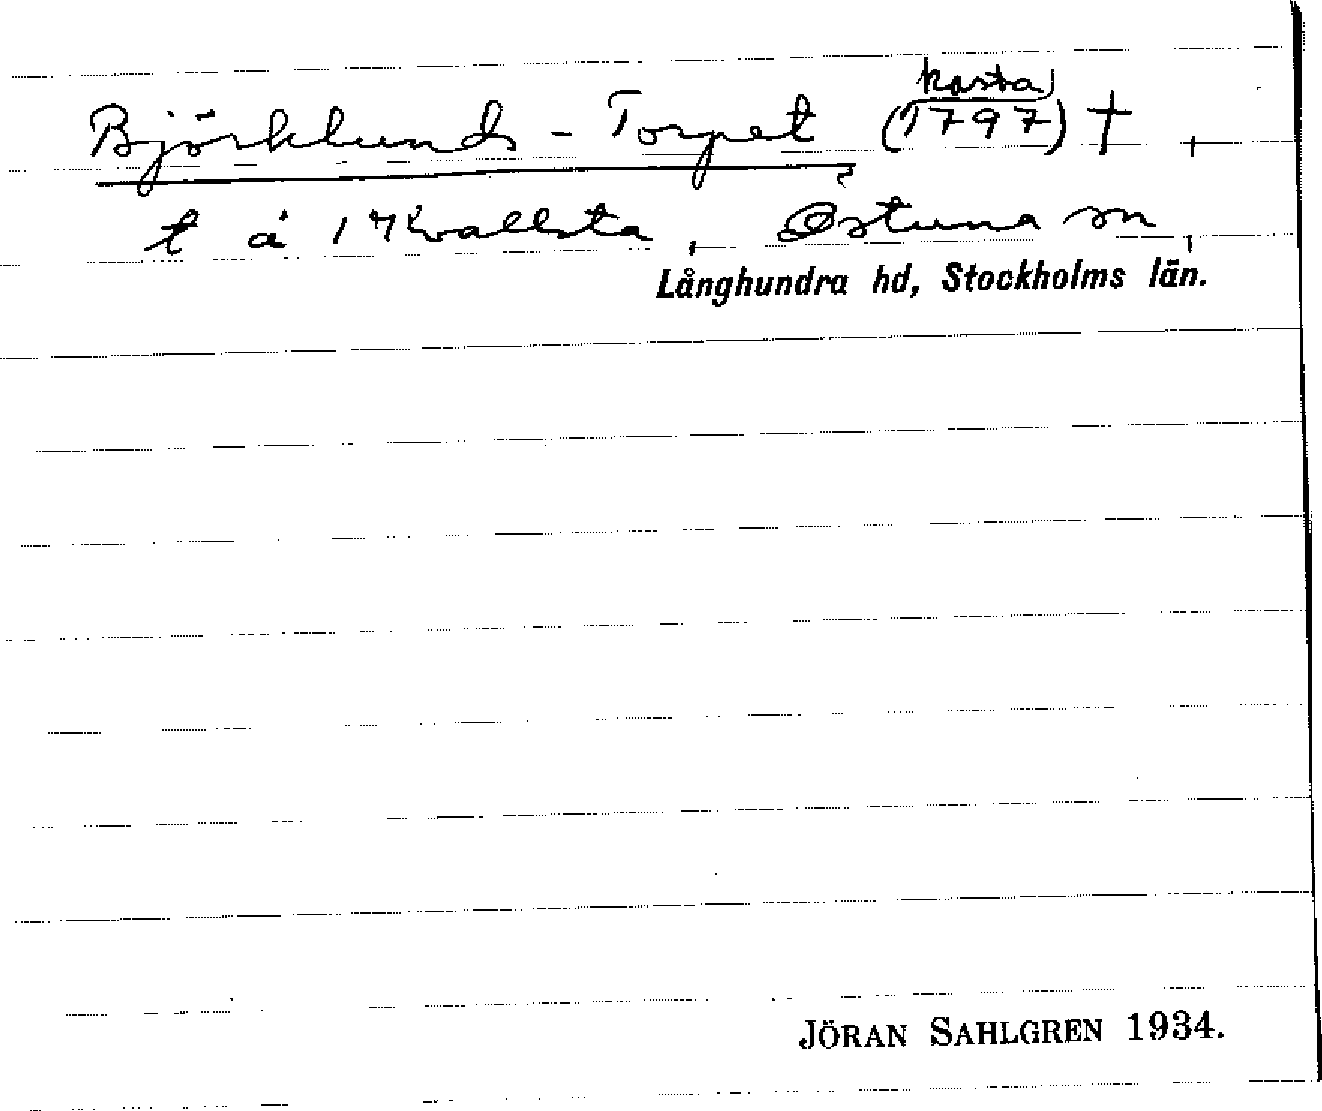 karta
Björklunds-Torpet (1797) †,
t å 1 Kvallsta, Östuna sn,
Långhundra hd, Stockholms län.
JÖRAN SAHLGREN 1934.